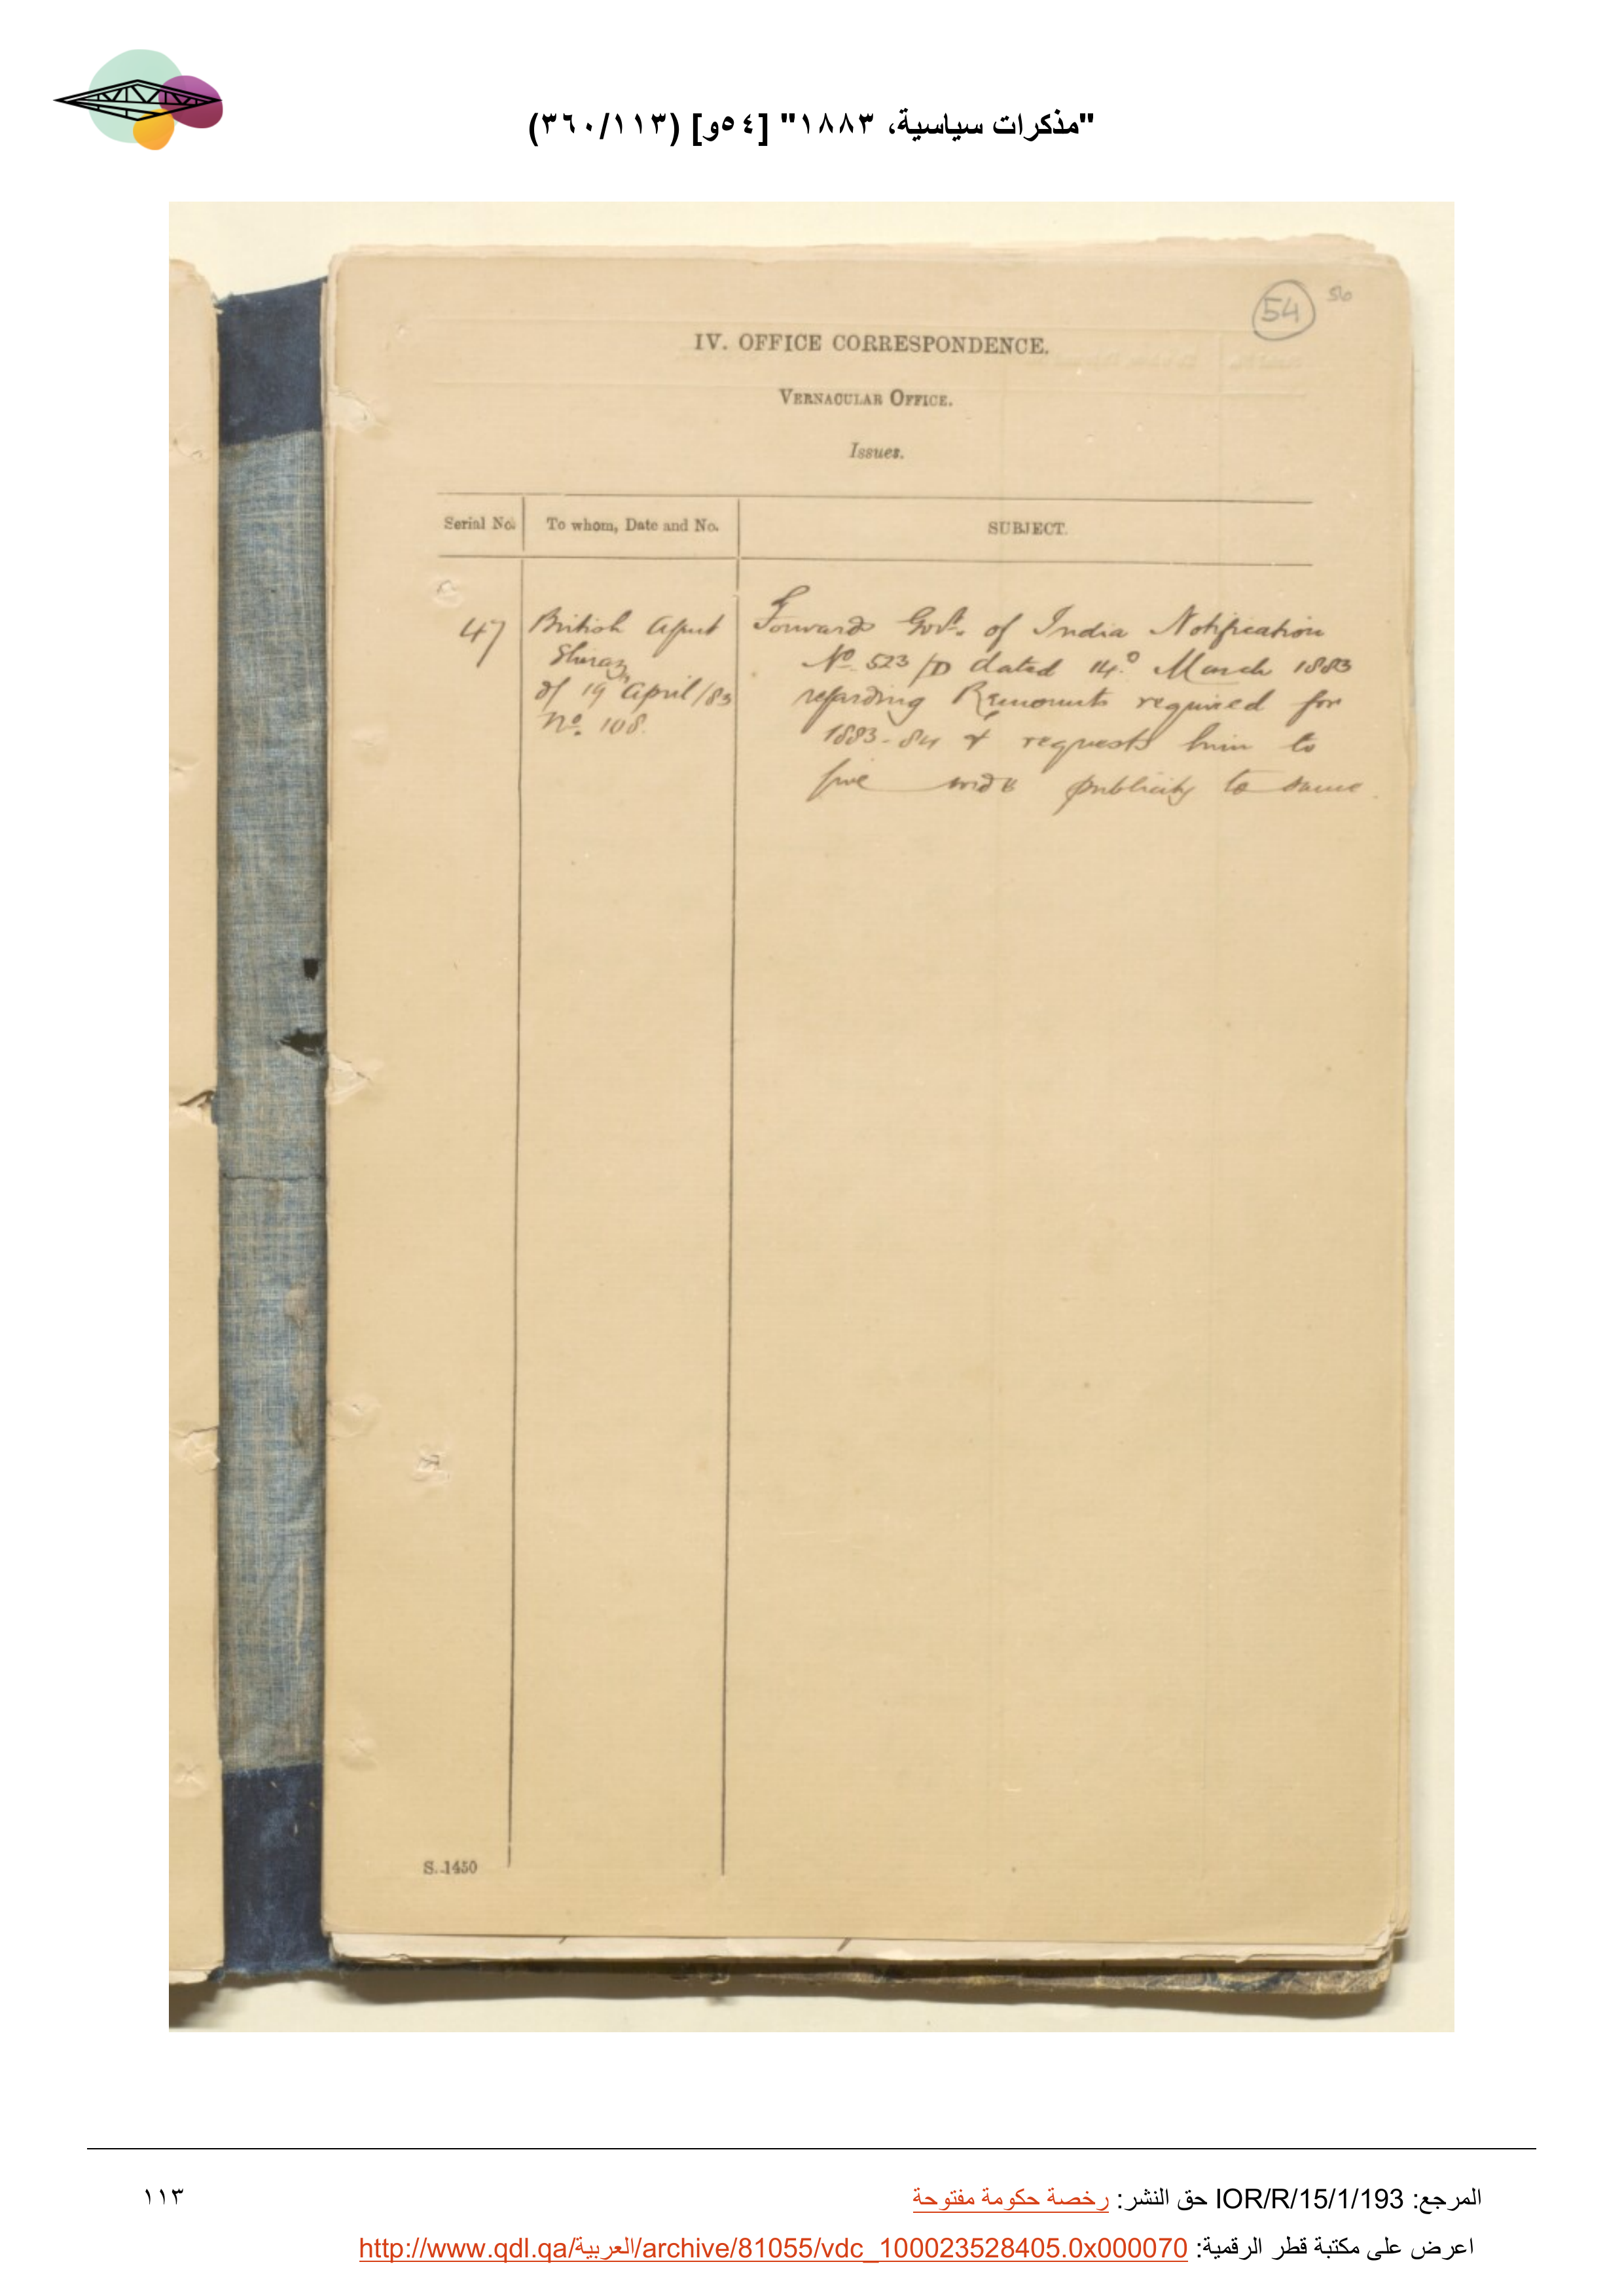 "مذكرات سياسية، ١٨٨٣" [٥٤و] (٣٦٠/١١٣)
54
56
IV. OFFICE CORRESPONDENCE.
VERNACULAR OFFICE.
Issues.
Serial No. To whom, Date and No. SUBJECT.
47 British Agent Forwards Govt. of India Notification
Shiraz No. 523/D dated 14th March 1883
of 19 April/83 regarding Remounts required for
No. 108. 1883-84 & requests him to
give wide publicity to same.
S. 1450
المرجع: IOR/R/15/1/193 حق النشر: رخصة حكومة مفتوحة
١١٣
اعرض على مكتبة قطر الرقمية: http://www.qdl.qa/العربية/archive/81055/vdc_100023528405.0x000070